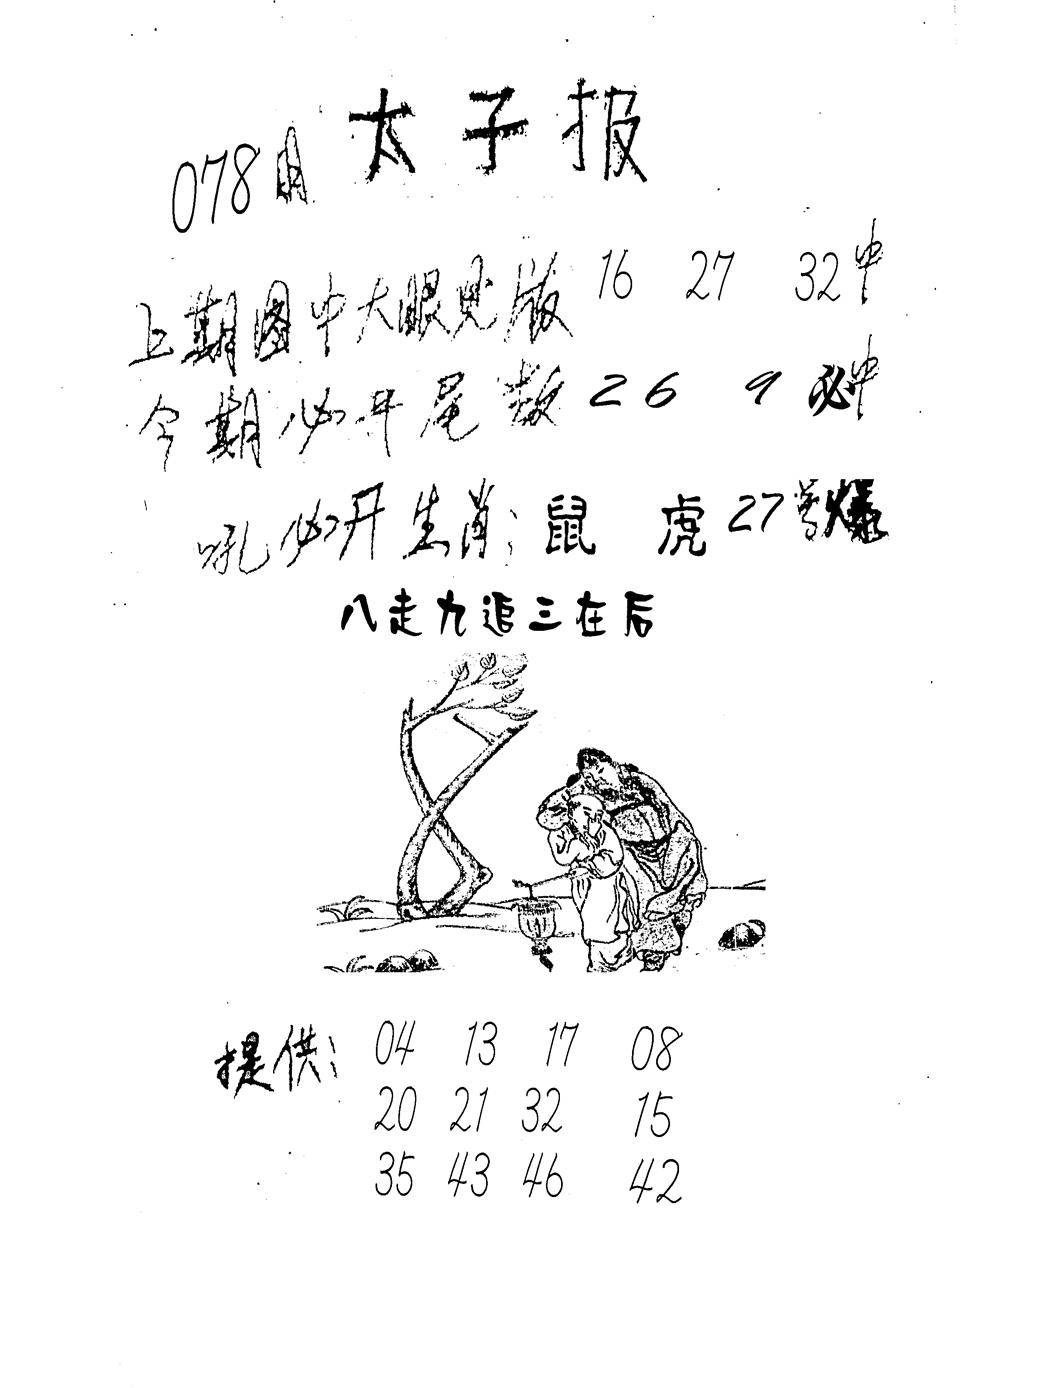 太子报
078期
上期图中大眼见版 16 27 32中
今期必开尾数 2 6 9 必中
吼必开生肖: 鼠 虎 27号爆
八走九追三在后
提供: 04 13 17 08
20 21 32 15
35 43 46 42